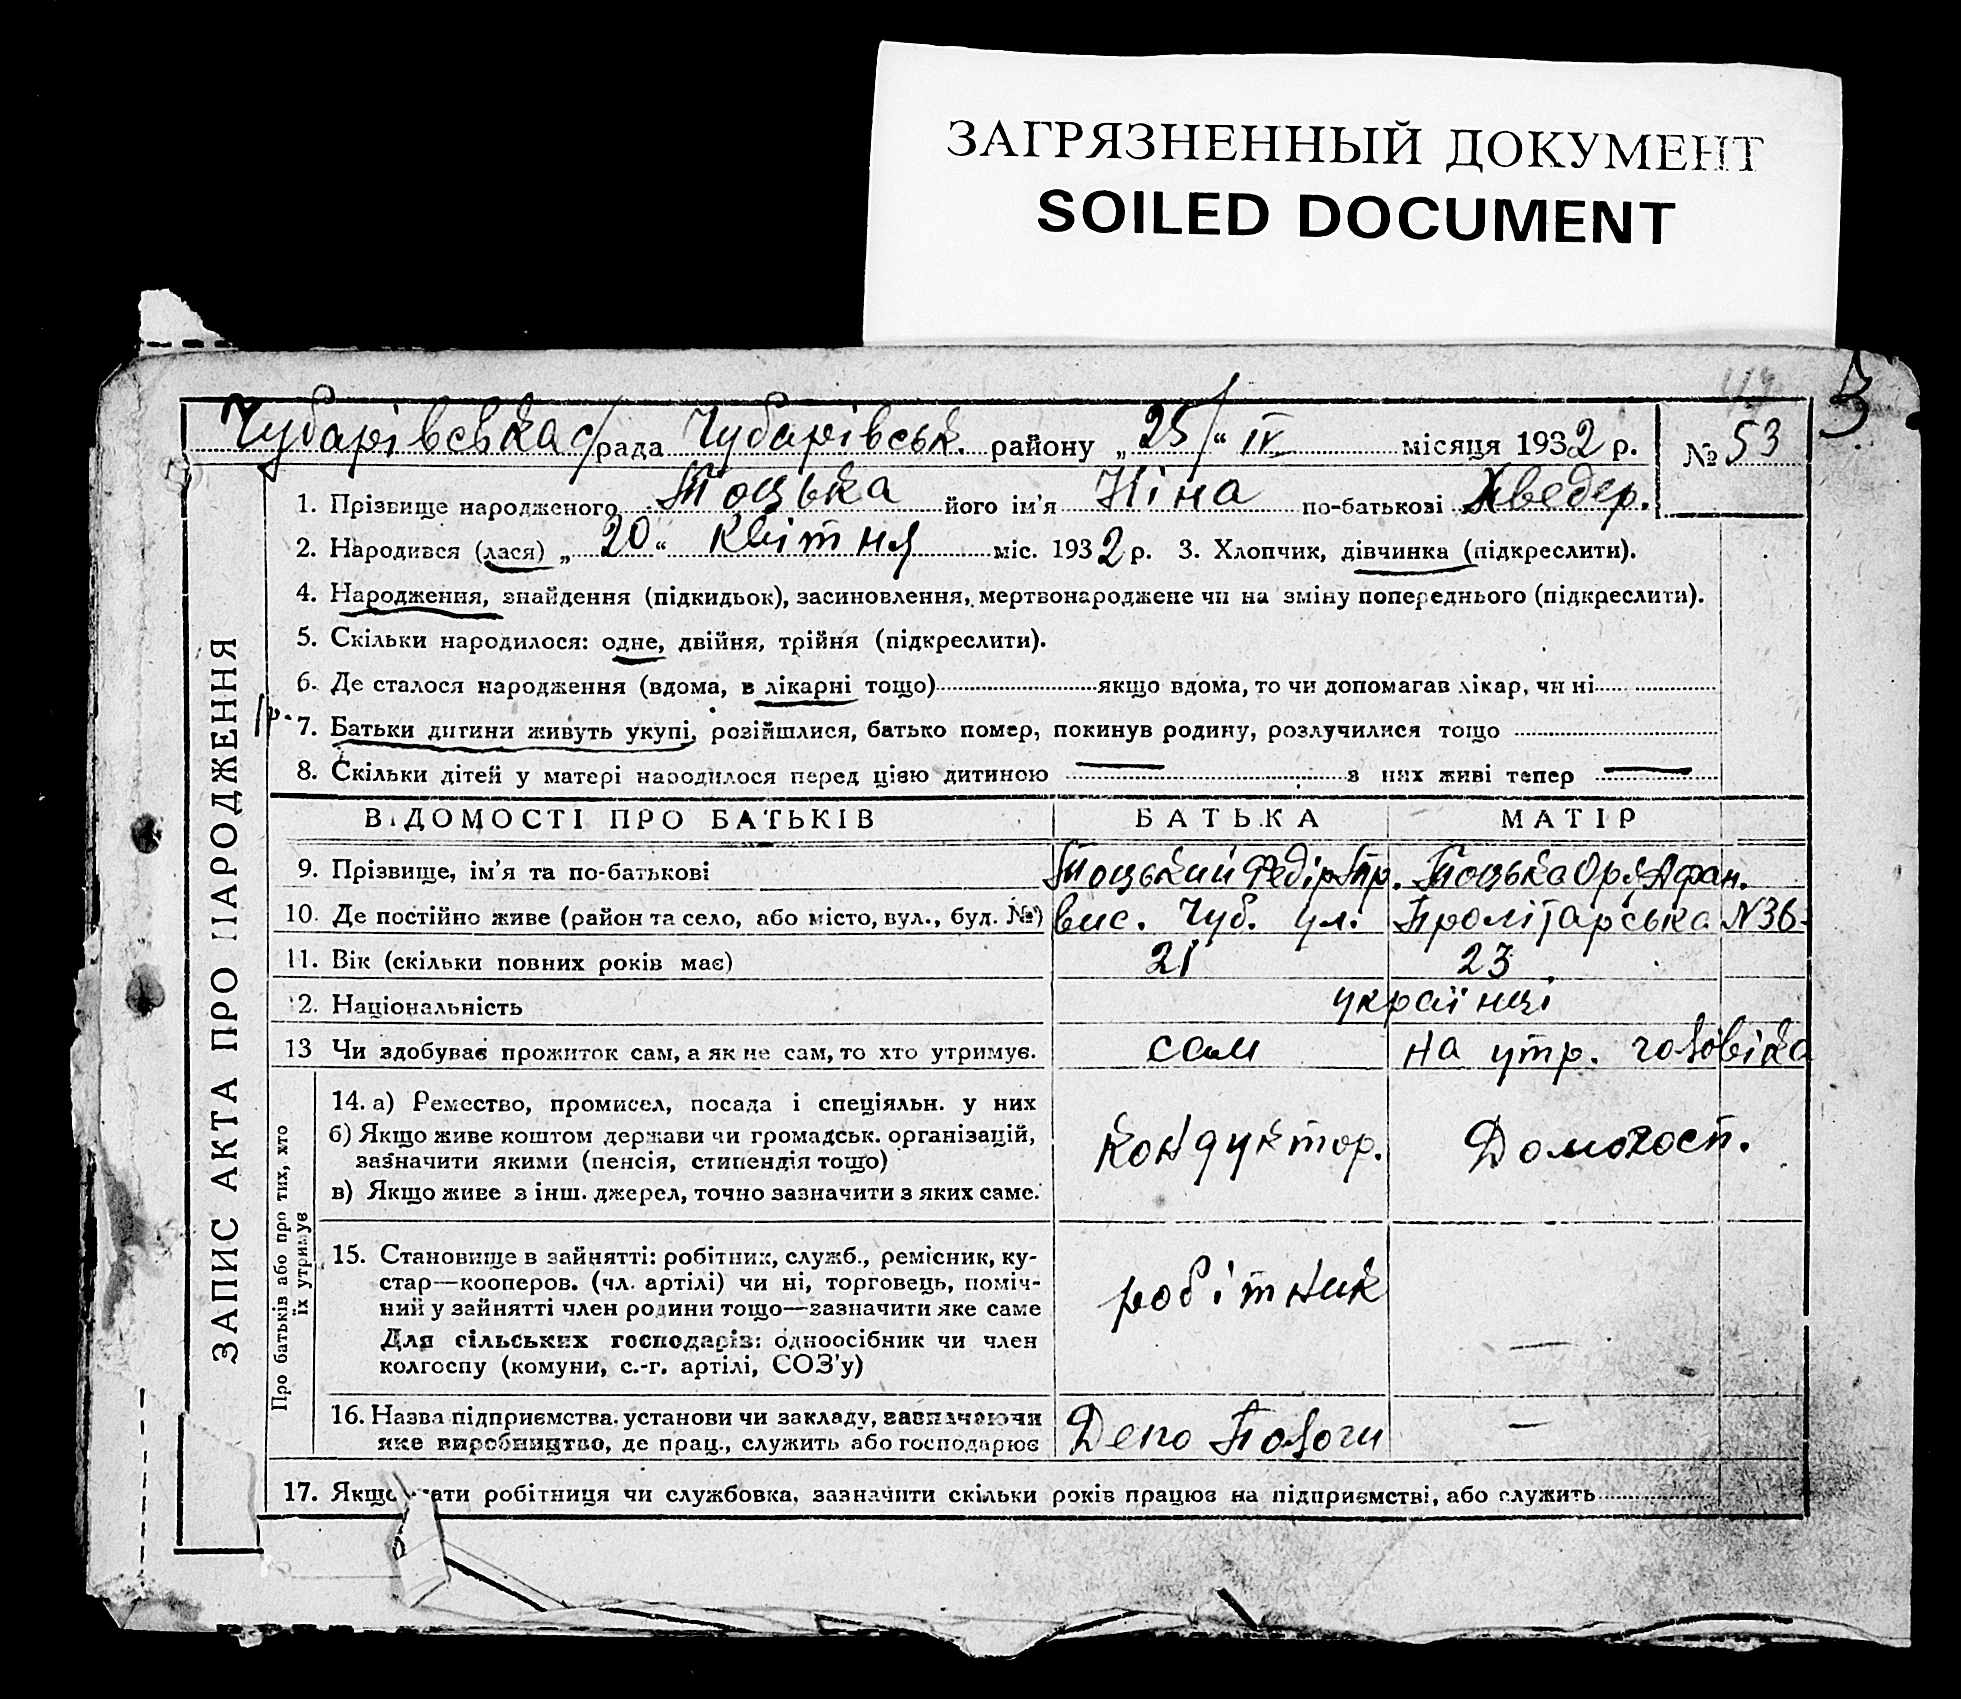 ЗАГРЯЗНЕННЫЙ ДОКУМЕНТ
SOILED DOCUMENT
3
Чубарівська с/рада Чубарівськ. району „25“ IV місяця 1932 р. № 53
1. Прізвище народженого Тоцька його ім'я Ніна по-батькові Хведер.
2. Народився (лася) „20“ квітня міс. 1932 р. 3. Хлопчик, дівчинка (підкреслити).
4. Народження, знайдення (підкидьок), засиновлення, мертвонароджене чи на зміну попереднього (підкреслити).
5. Скільки народилося: одне, двійня, трійня (підкреслити).
6. Де сталося народження (вдома, в лікарні тощо) якщо вдома, то чи допомагав лікар, чи ні
7. Батьки дитини живуть укупі, розійшлися, батько помер, покинув родину, розлучилися тощо
8. Скільки дітей у матері народилося перед цією дитиною — з них живі тепер —
ЗАПИС АКТА ПРО НАРОДЖЕННЯ
ВІДОМОСТІ ПРО БАТЬКІВ БАТЬКА МАТІР
9. Прізвище, ім'я та по-батькові Тоцький Федір Тоцька Афан.
10. Де постійно живе (район та село, або місто, вул., буд. №) вис. Чуб. ул. Пролітарська N 36
11. Вік (скільки повних років має) 21 23
12. Національність українці
13 Чи здобуває прожиток сам, а як не сам, то хто утримує. сам на утр. чоловіка
Про батьків або про тих, хто
їх утримує
14. а) Ремество, промисел, посада і спеціяльн. у них
б) Якщо живе коштом держави чи громадськ. організацій,
зазначити якими (пенсія, стипендія тощо)
в) Якщо живе з інш. джерел, точно зазначити з яких саме.
кондуктор. Домогосп.
15. Становище в зайнятті: робітник, служб., ремісник, ку-
стар—кооперов. (чл. артілі) чи ні, торговець, поміч-
ний у зайнятті член родини тощо—зазначити яке саме
Для сільських господарів: одноосібник чи член
колгоспу (комуни, с.-г. артілі, СОЗ'у)
робітник —
16. Назва підприємства, установи чи закладу, зазначаючи
яке виробництво, де прац., служить або господарює
Депо Пологи —
17. Якщо мати робітниця чи службовка, зазначити скільки років працює на підприємстві, або служить